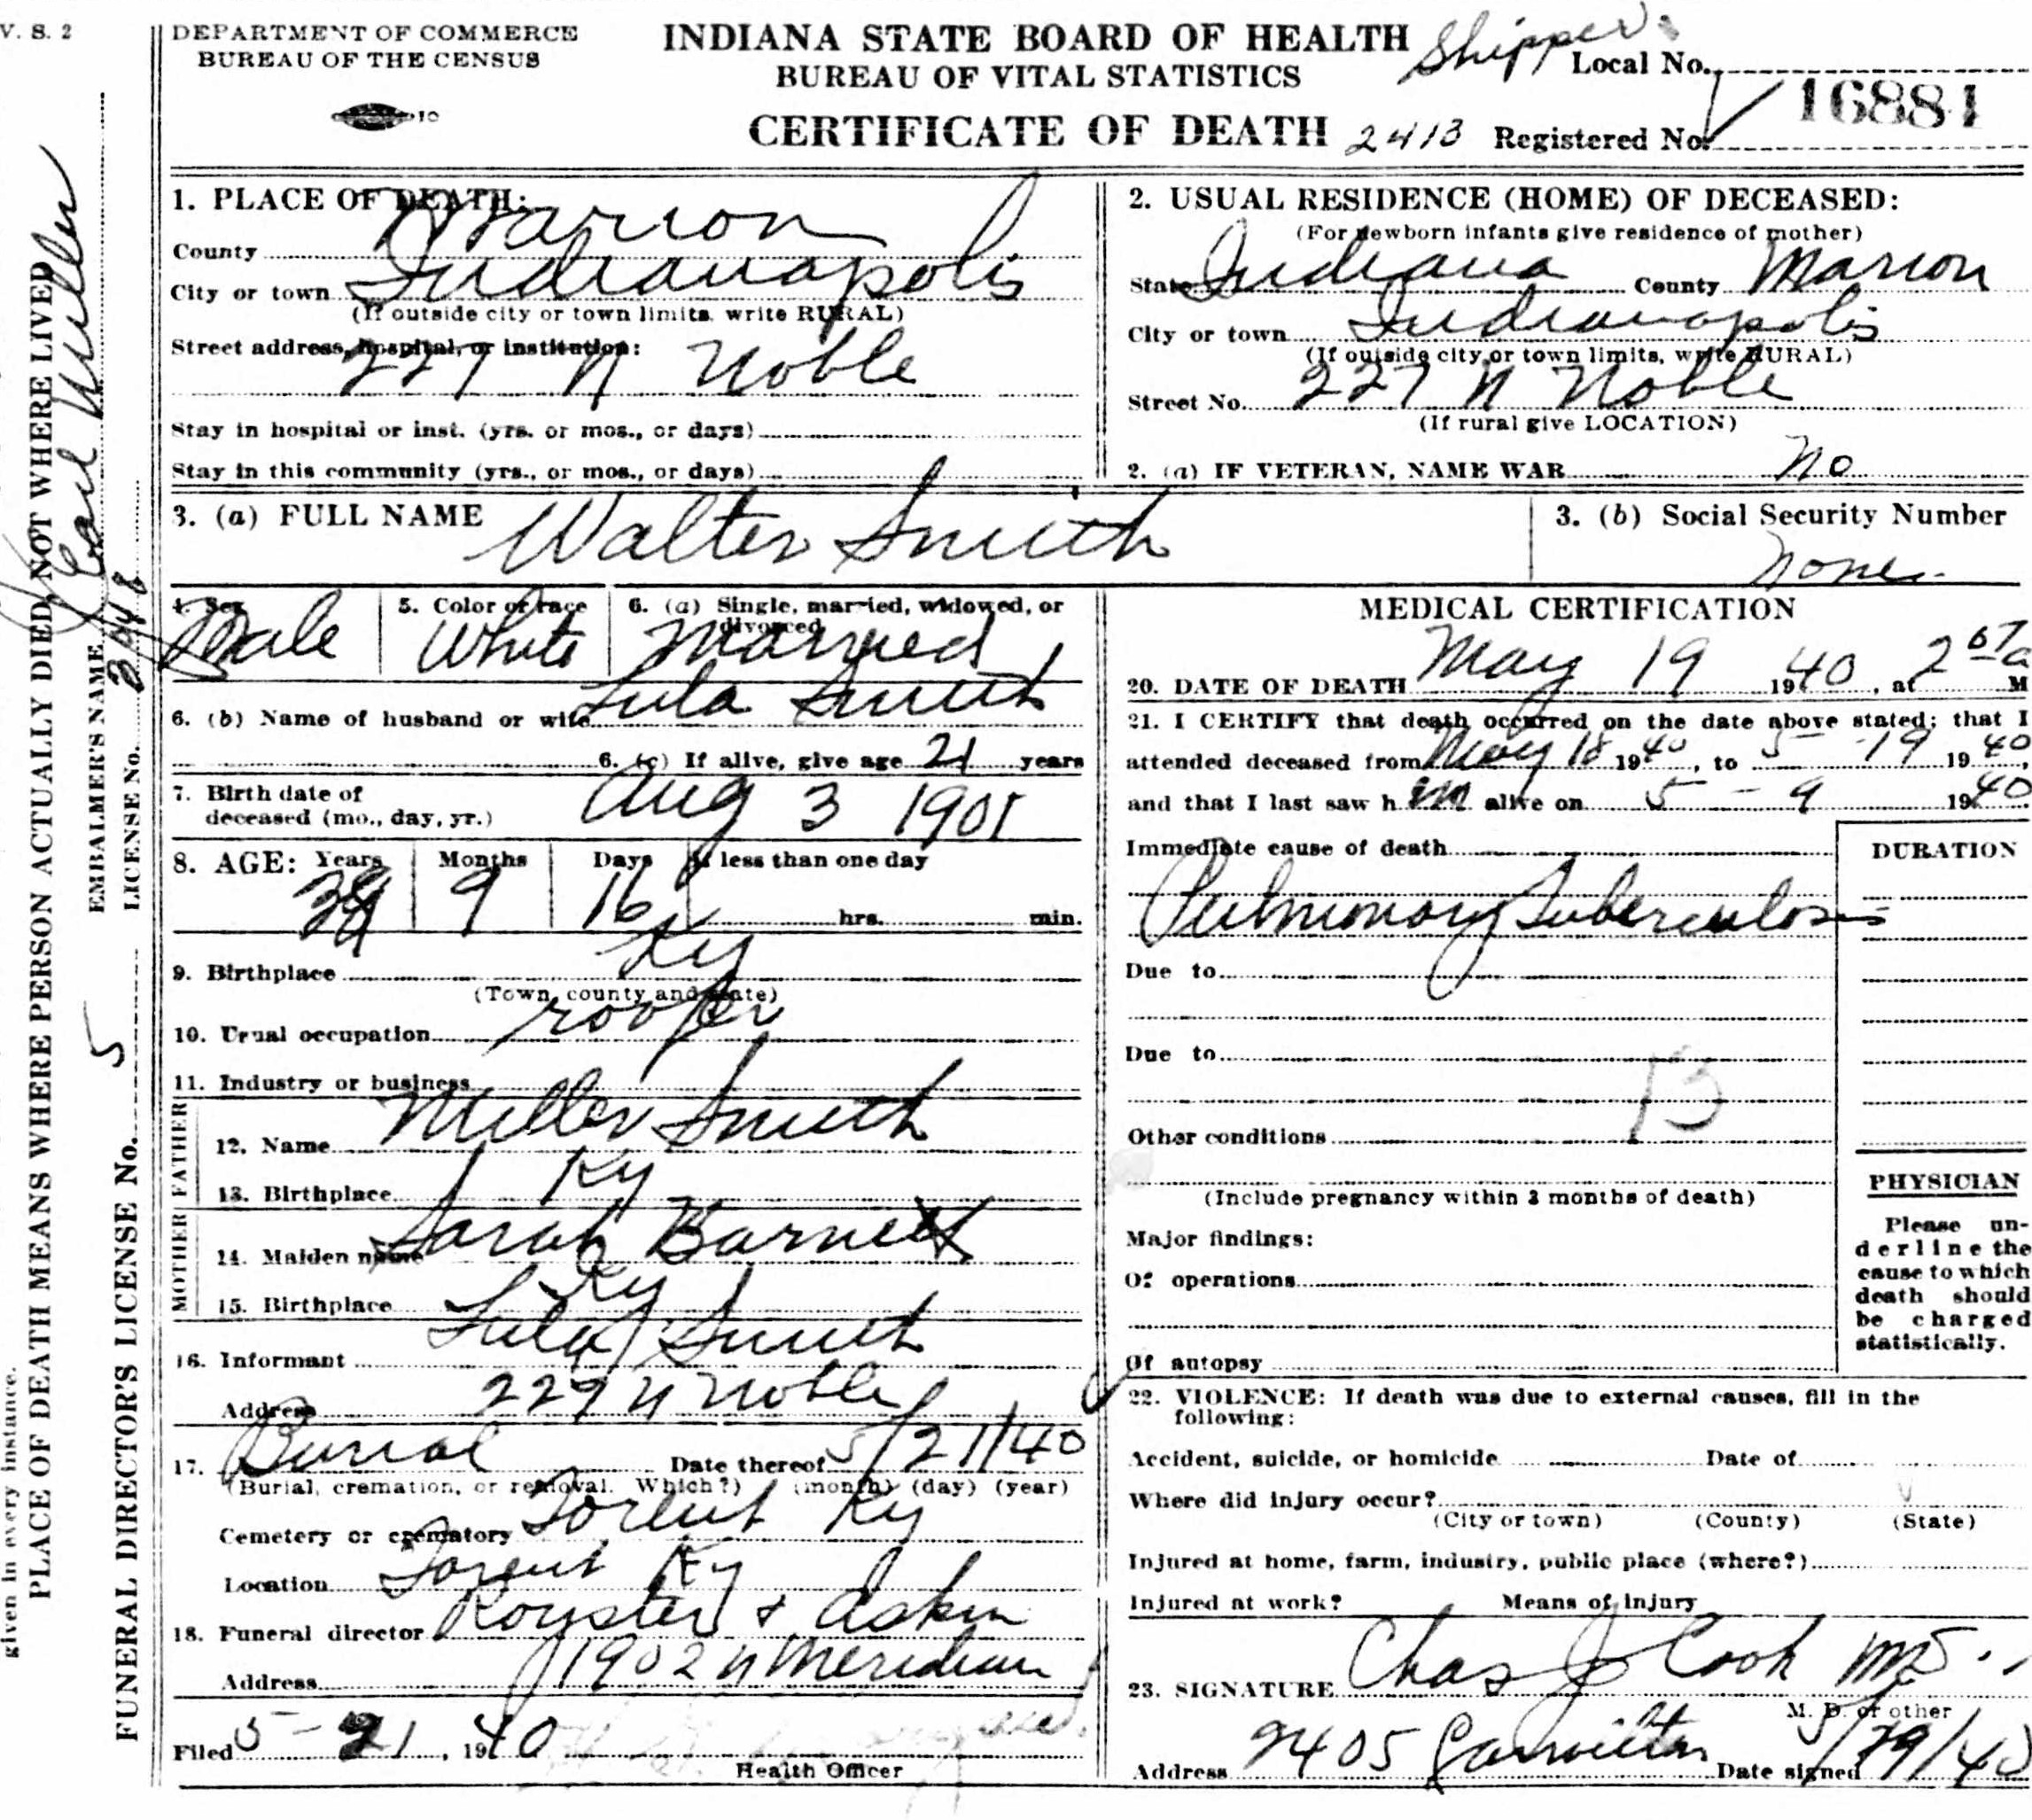 V. S. 2
DEPARTMENT OF COMMERCE
BUREAU OF THE CENSUS
INDIANA STATE BOARD OF HEALTH
BUREAU OF VITAL STATISTICS
CERTIFICATE OF DEATH
Shipper
Local No.
2413 Registered No. 16881
1. PLACE OF DEATH:
County Marion
City or town Indianapolis
(If outside city or town limits, write RURAL)
Street address, hospital, or institution:
227 N Noble
Stay in hospital or inst. (yrs. or mos., or days)
Stay in this community (yrs., or mos., or days)
2. USUAL RESIDENCE (HOME) OF DECEASED:
(For newborn infants give residence of mother)
State Indiana County Marion
City or town Indianapolis
(If outside city or town limits, write RURAL)
Street No. 227 N Noble
(If rural give LOCATION)
2. (a) IF VETERAN, NAME WAR No
3. (a) FULL NAME Walter Smith
3. (b) Social Security Number
None
4. Sex
Male
5. Color or race
White
6. (a) Single, married, widowed, or divorced
Married
6. (b) Name of husband or wife Lula Smith
6. (c) If alive, give age 21 years
7. Birth date of
deceased (mo., day, yr.) Aug 3 1901
8. AGE: Years Months Days If less than one day
38 9 16 hrs. min.
9. Birthplace Ky
(Town, county and state)
10. Usual occupation roofer
11. Industry or business
FATHER
12. Name Miller Smith
13. Birthplace Ky
MOTHER
14. Maiden name Sarah Barnett
15. Birthplace Ky
16. Informant Lula Smith
Address 229 N Noble
17. Burial Date thereof 5/21/40
(Burial, cremation, or removal. Which?) (month) (day) (year)
Cemetery or crematory Torent Ky
Location Torent Ky
18. Funeral director Royster & Askin
Address 1902 N Meridian
Filed 5-21, 1940
Health Officer
MEDICAL CERTIFICATION
20. DATE OF DEATH May 19 1940, at 2 07 a M
21. I CERTIFY that death occurred on the date above stated; that I
attended deceased from May 18 1940, to 5-19 1940,
and that I last saw h im alive on 5-9 1940
Immediate cause of death
DURATION
Pulmonary Tuberculosis
Due to
Due to
13
Other conditions
(Include pregnancy within 3 months of death)
Major findings:
Of operations
Of autopsy
PHYSICIAN
Please un-
derline the
cause to which
death should
be charged
statistically.
22. VIOLENCE: If death was due to external causes, fill in the
following:
Accident, suicide, or homicide Date of
Where did injury occur?
(City or town) (County) (State)
Injured at home, farm, industry, public place (where?)
Injured at work? Means of injury
23. SIGNATURE Chas J Cook MD
M. D. or other
Address 2405 Date signed 5/29/40
given in every instance.
PLACE OF DEATH MEANS WHERE PERSON ACTUALLY DIED, NOT WHERE LIVED
EMBALMER'S NAME Carl Miller
LICENSE No.
FUNERAL DIRECTOR'S LICENSE No. 5